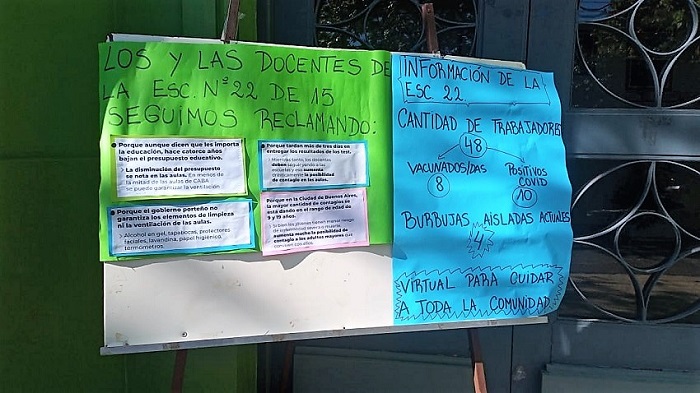 LOS Y LAS DOCENTES DE
LA ESC. N°22 DE 15
SEGUIMOS RECLAMANDO:
Porque aunque dicen que les importa
la educación, hace catorce años
bajan el presupuesto educativo.
La disminución del presupuesto
se nota en las aulas. En menos de
la mitad de las aulas de CABA
se puede garantizar la ventilación
Porque el gobierno porteño no
garantiza los elementos de limpieza
ni la ventilación de las aulas.
Alcohol en gel, tapabocas, protectores
faciales, lavandina, papel higiénico,
termómetros.
Porque tardan más de tres días en
entregar los resultados de los test.
Mientras tanto, los docentes
deben seguir yendo a las
escuelas y eso aumenta
la posibilidad
de contagio en las aulas.
Porque en la Ciudad de Buenos Aires,
la mayor cantidad de contagios se
está dando en el rango de edad de
9 y 19 años.
Si bien los jóvenes tienen menor riesgo
de enfermedad severa o muerte,
aumenta mucho la posibilidad de
contagio a los adultos mayores que
conviven con ellos.
INFORMACIÓN DE LA
ESC. 22
CANTIDAD DE TRABAJADORES
48
VACUNADOS/DAS
8
POSITIVOS
COVID
10
BURBUJAS AISLADAS ACTUALES
4
VIRTUAL PARA CUIDAR
A TODA LA COMUNIDAD